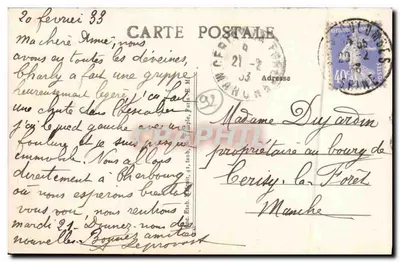 20 fevrier 33
CARTE POSTALE
Ma chère Amie, nous
avons eu toutes les déveines,
Charly a fait une grippe
heureusement légère, j'ai fait
une chute dans l'escalier
j'ai le pied gauche avec une
foulure et je suis presque
immobile. Nous allons
directement à Cherbourg
où nous esperons bientôt
vous voir, nous rentrons
mardi 21. Donnez-nous des
nouvelles. Bonnes amitiés
Leprovost
Adresse
CERISY LA FORET
21-2
33
MANCHE
92
40c
Madame Dujardin
propriétaire au bourg de
Cerisy-la-Forêt
Manche